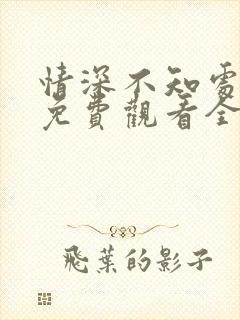 情深不知處
免費觀看全
飛葉的影子